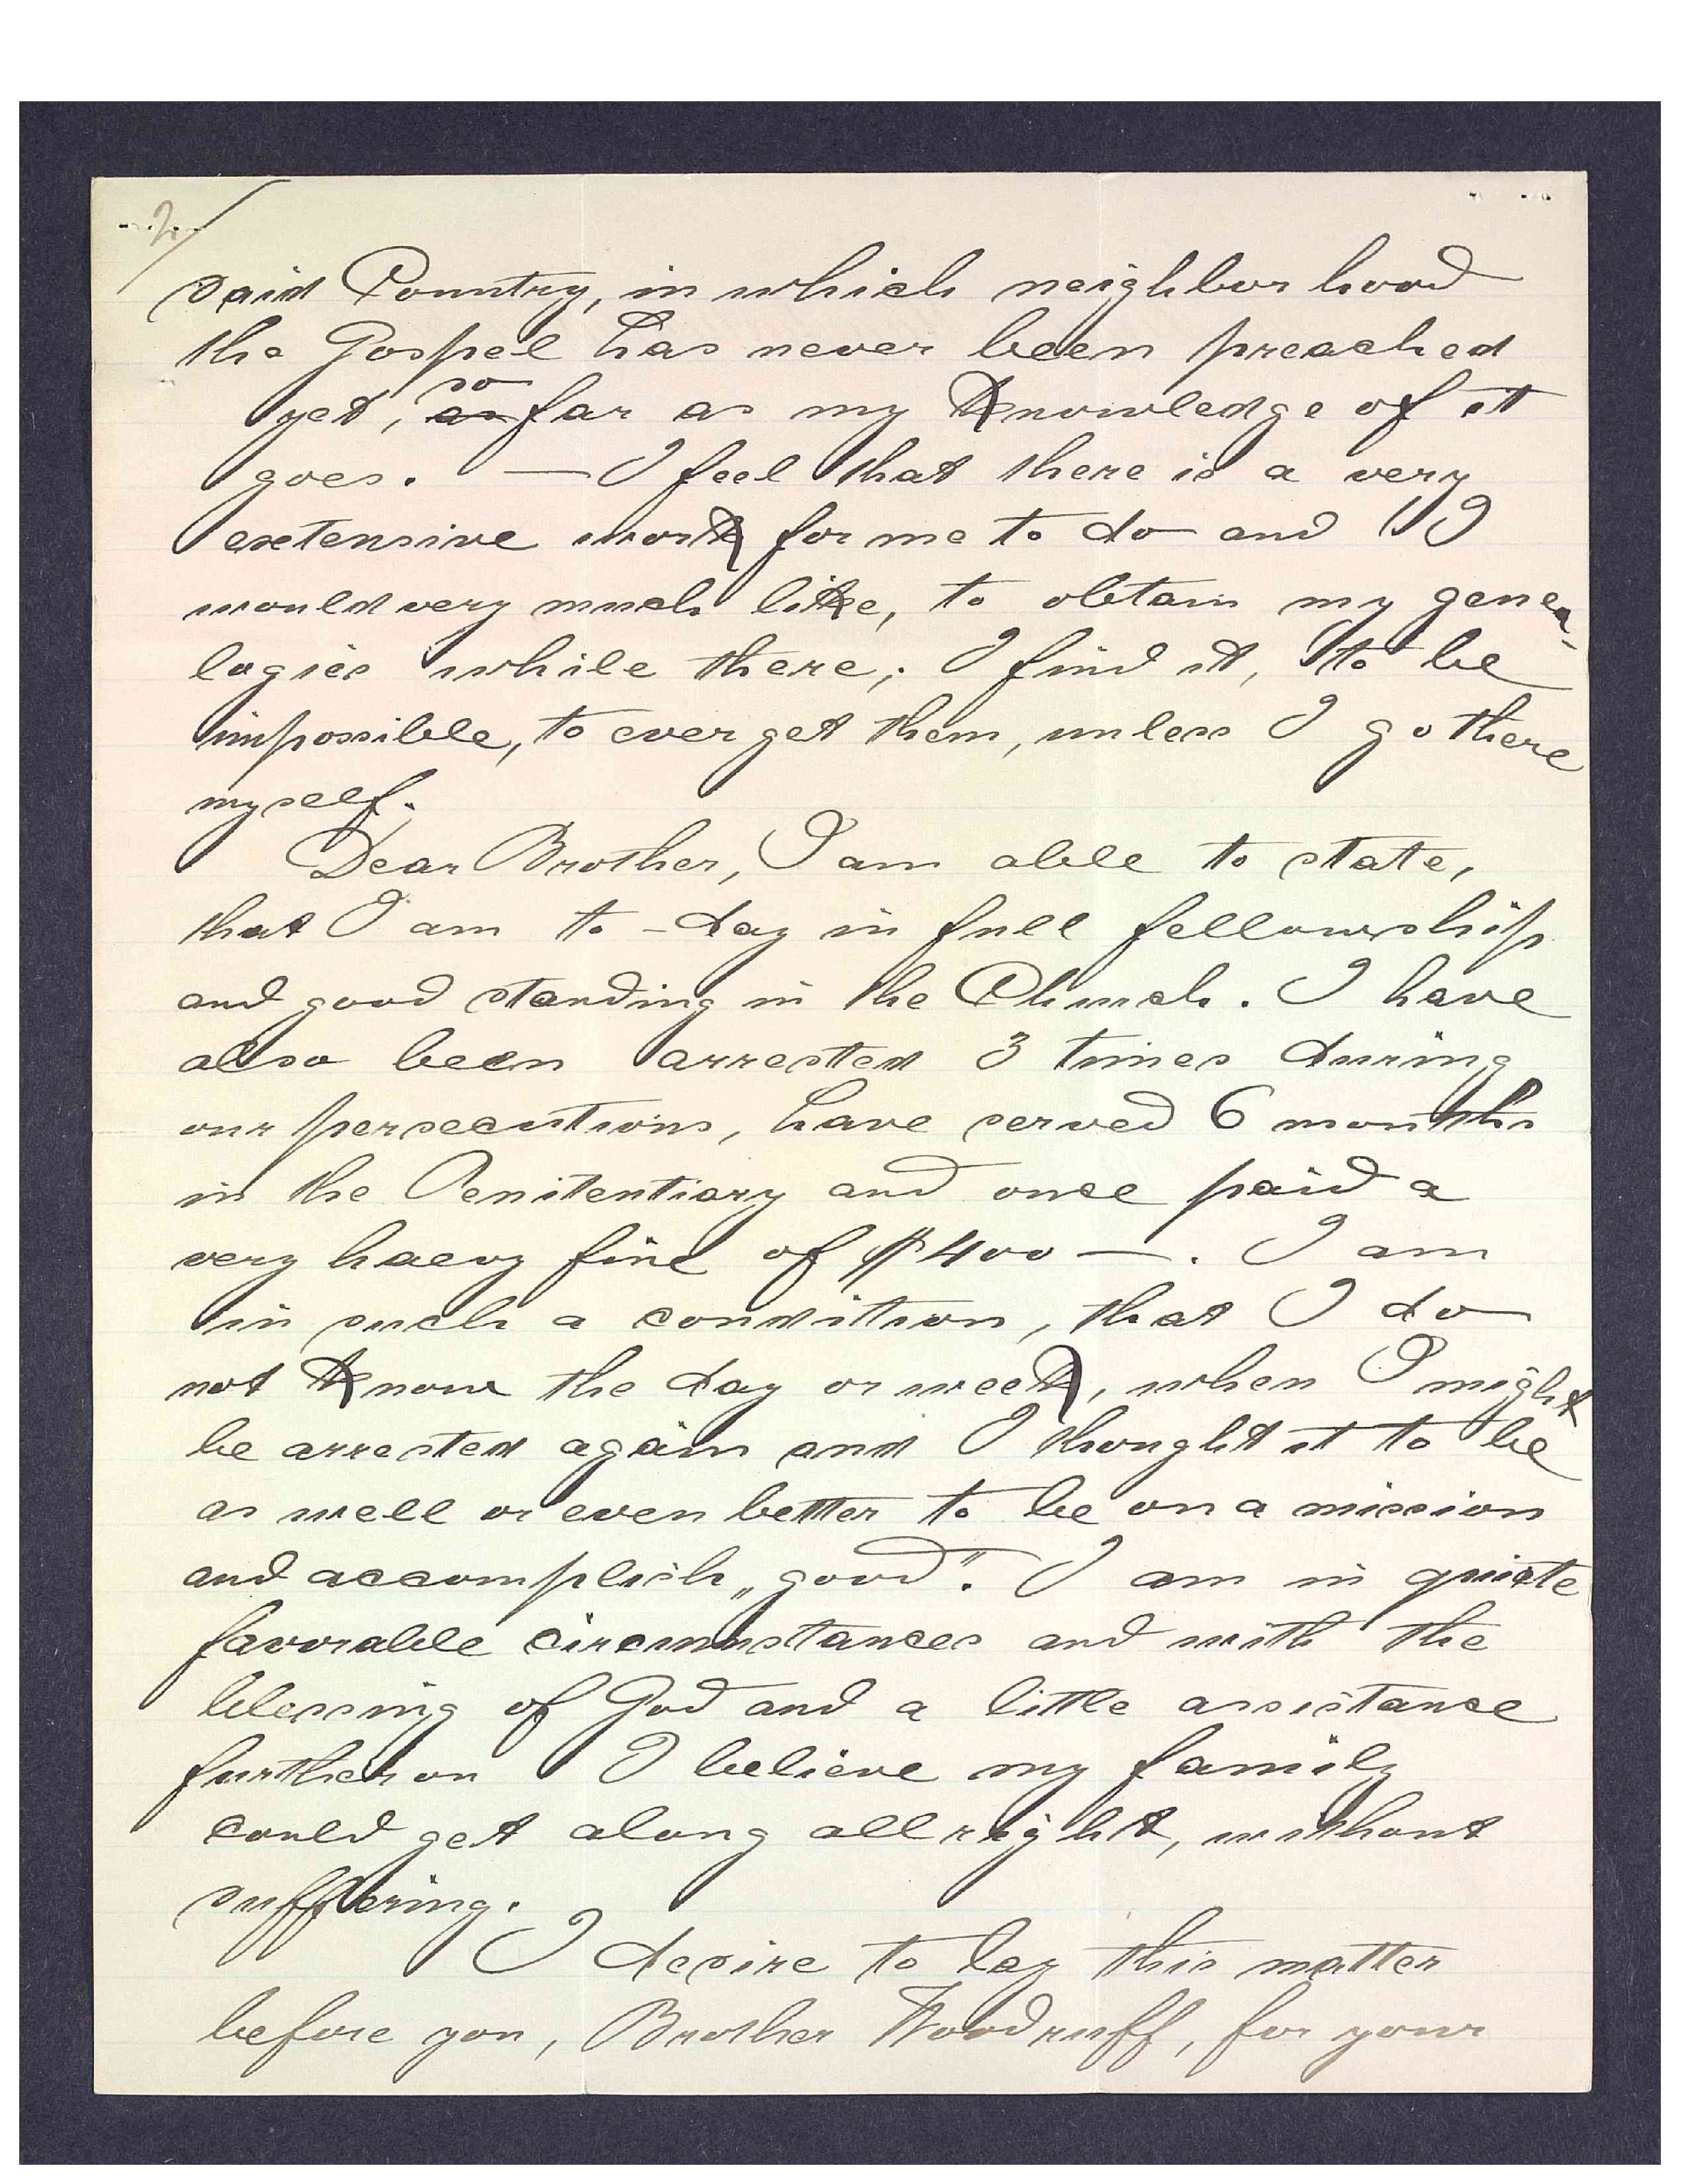 2/
said Country, in which neighbor hood
the Gospel has never been preached
so
yet, as far as my Knowledge of it
goes. — I feel that there is a very
extensive work for me to do and I
would very much like, to obtain my genea-
logies while there; I find it, to be
impossible, to ever get them, unless I go there
myself.
Dear Brother, I am able to state,
that I am to-day in full fellowship
and good standing in the Church. I have
also been arrested 3 times during
our persecutions, have served 6 months
in the Penitentiary and once paid a
very haevy fine of $400 —. I am
in such a condition, that I do
not Know the day or week, when I might
be arrested again and I thought it to be
as well or even better to be on a mission
and accomplish „good". I am in quiete
favorable circumstances and with the
blessing of God and a little assistance
further on I believe my family
could get along all right, without
suffering.
I desire to lay this matter
before you, Brother Woodruff, for your